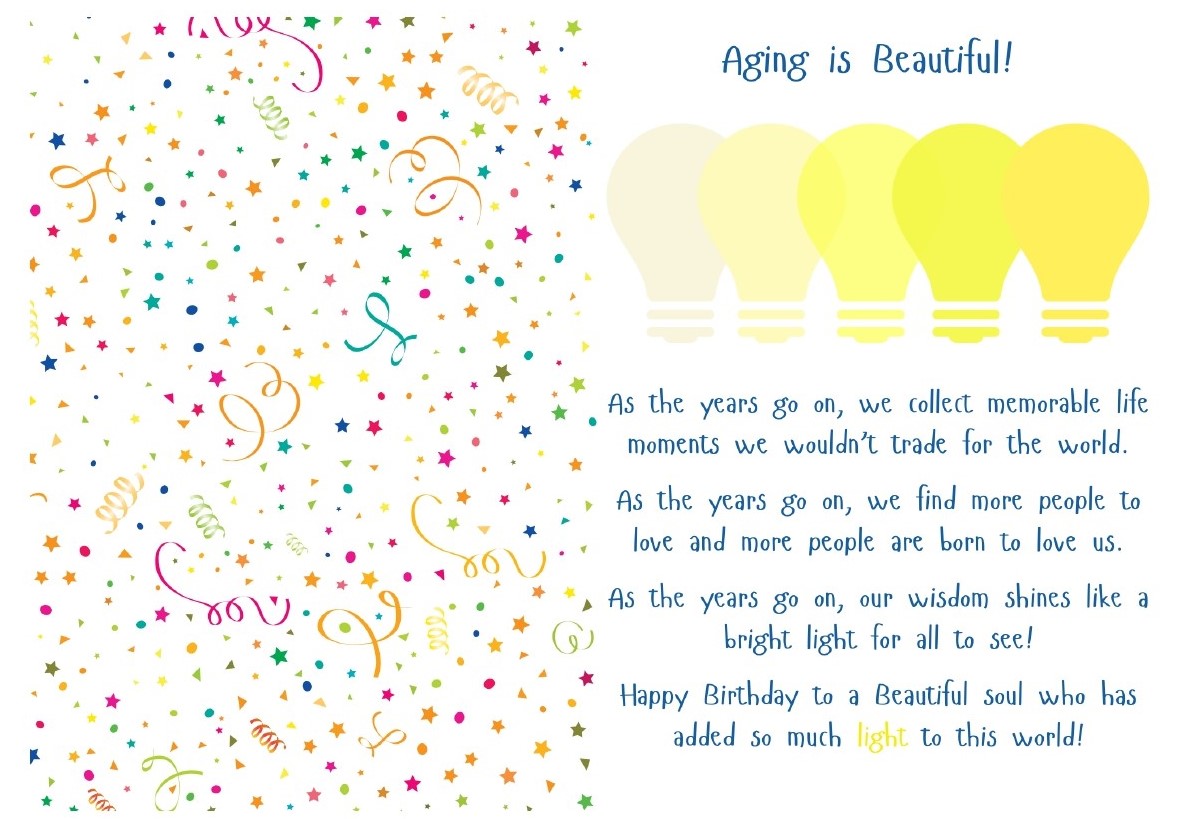 Aging is Beautiful!
As the years go on, we collect memorable life
moments we wouldn't trade for the world.
As the years go on, we find more people to
love and more people are born to love us.
As the years go on, our wisdom shines like a
bright light for all to see!
Happy Birthday to a Beautiful soul who has
added so much light to this world!